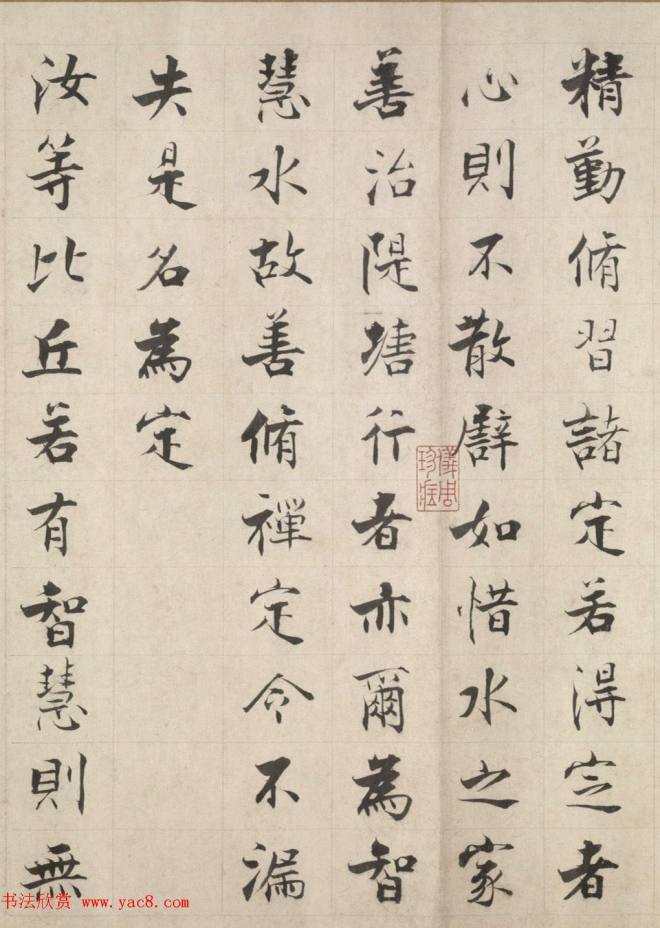 精勤脩習諸定若得定者
心則不散譬如惜水之家
善治隄塘行者亦爾為智
慧水故善脩禪定令不漏
失是名為定
汝等比丘若有智慧則無
书法欣赏 www.yac8.com